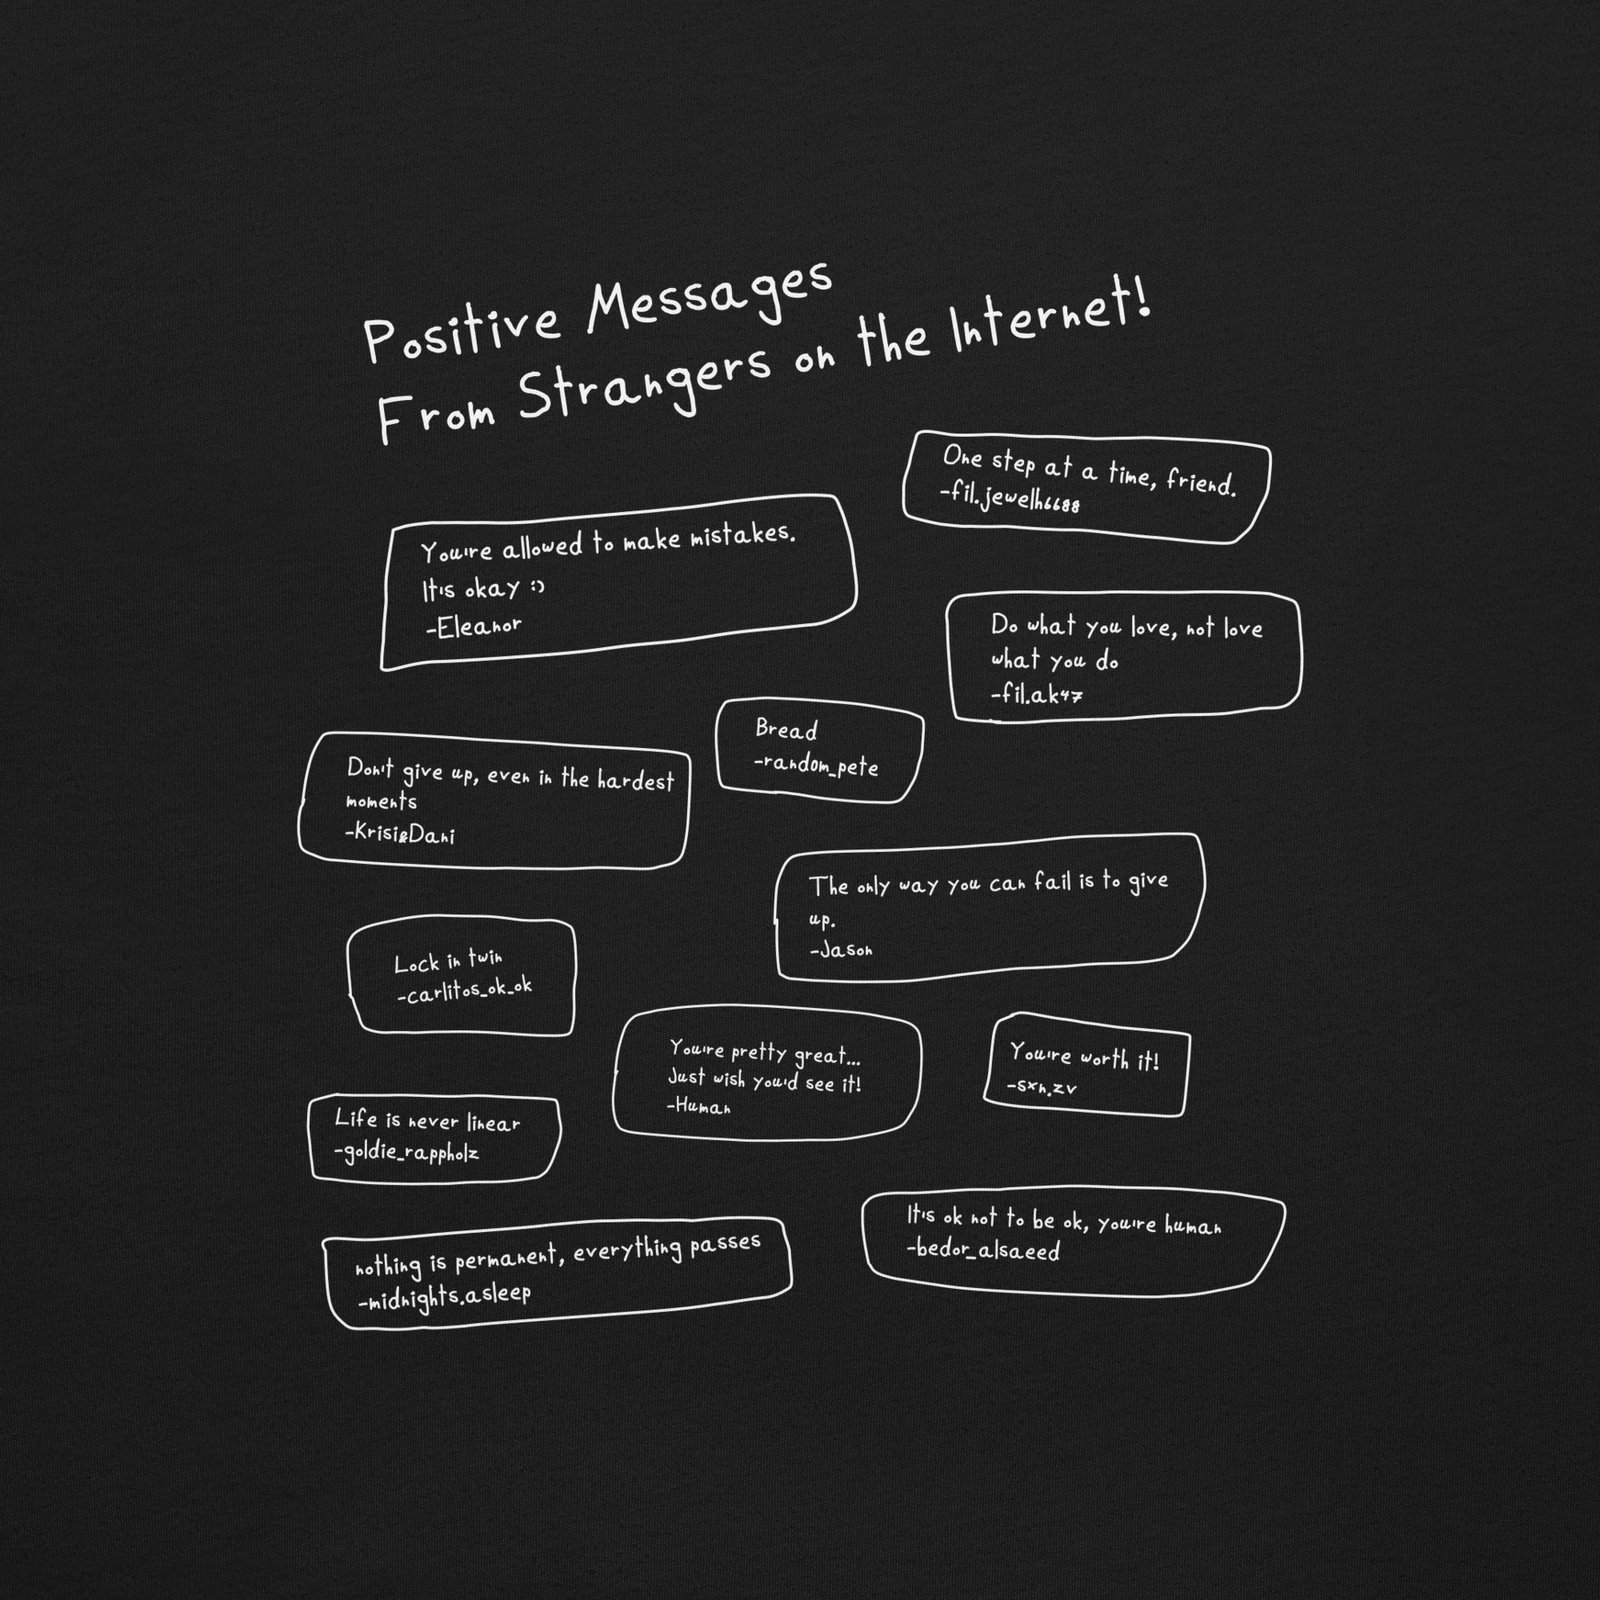 Positive Messages
From Strangers on the Internet!
One step at a time, friend.
-fil.jewelh6688
You're allowed to make mistakes.
It's okay :)
-Eleanor
Do what you love, not love
what you do
-fil.ak47
Bread
-random_pete
Don't give up, even in the hardest
moments
-Krisi&Dani
The only way you can fail is to give
up.
-Jason
Lock in twin
-carlitos_ok_ok
You're pretty great...
Just wish you'd see it!
-Human
You're worth it!
-sxn.zv
Life is never linear
-goldie_rappholz
It's ok not to be ok, you're human
-bedor_alsaeed
nothing is permanent, everything passes
-midnights.asleep